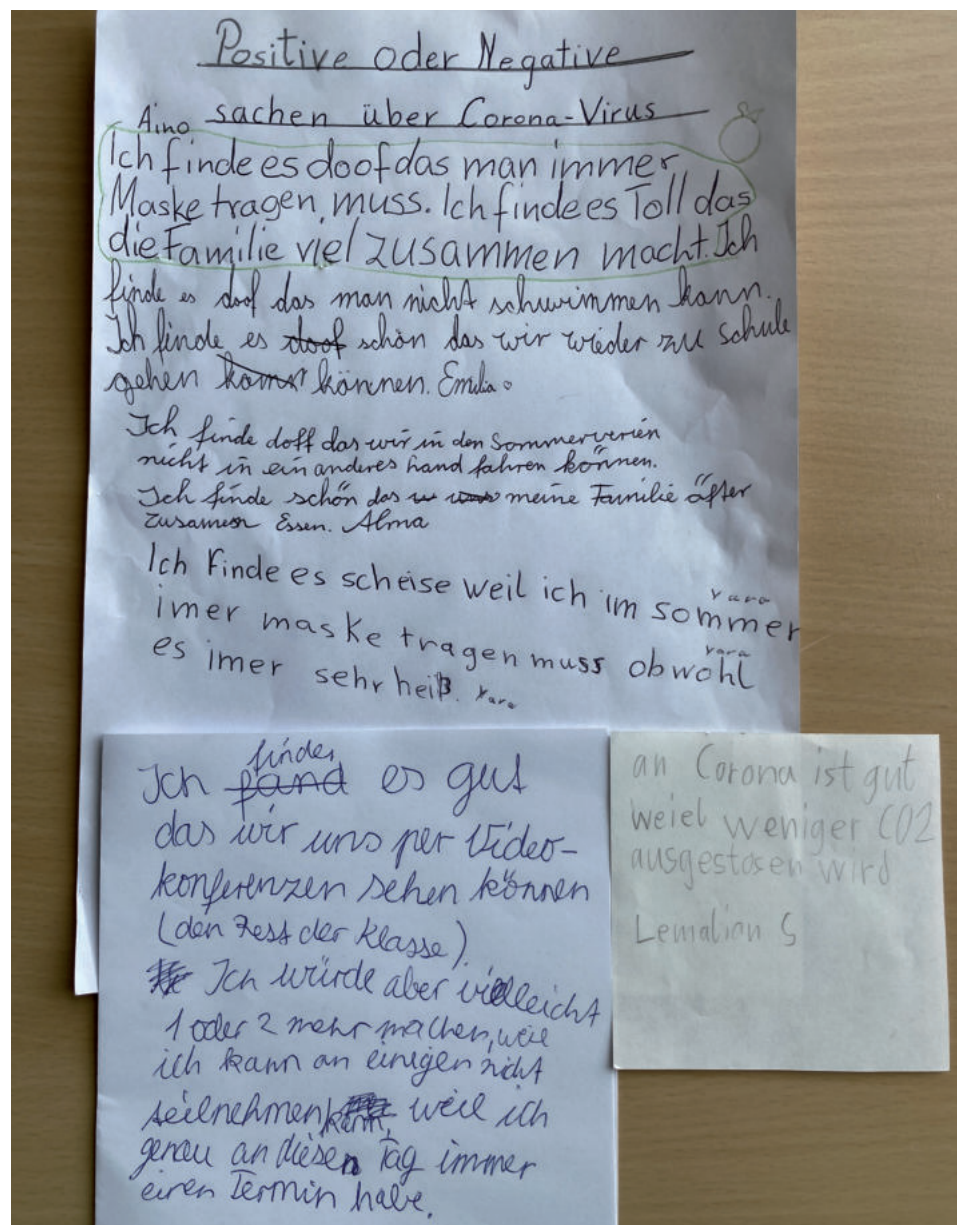 Positive oder Negative
sachen über Corona-Virus
Aino
Ich finde es doof das man immer
Maske tragen, muss. Ich finde es Toll das
die Familie viel zusammen macht. Ich
finde es doof das man nicht schwimmen kann.
Ich finde es doof schön das wir wieder zu schule
gehen können. Emilia
Ich finde doff das wir in den Sommerverien
nicht in ein anderes Land fahren können.
Ich finde schön das meine Familie öfter
zusamen Essen. Alma
Ich Finde es scheise weil ich im sommer
Yara
imer maske tragen muss obwohl
Yara
es imer sehr heiß. Yara
finde
Ich fand es gut
das wir uns per Video-
konferenzen sehen können
(den Rest der Klasse).
Ich würde aber vielleicht
1 oder 2 mehr machen, weil
ich kann an einigen nicht
teilnehmen kann, weil ich
genau an diesen Tag immer
einen Termin habe.
an Corona ist gut
weiel weniger CO2
ausgestosen wird